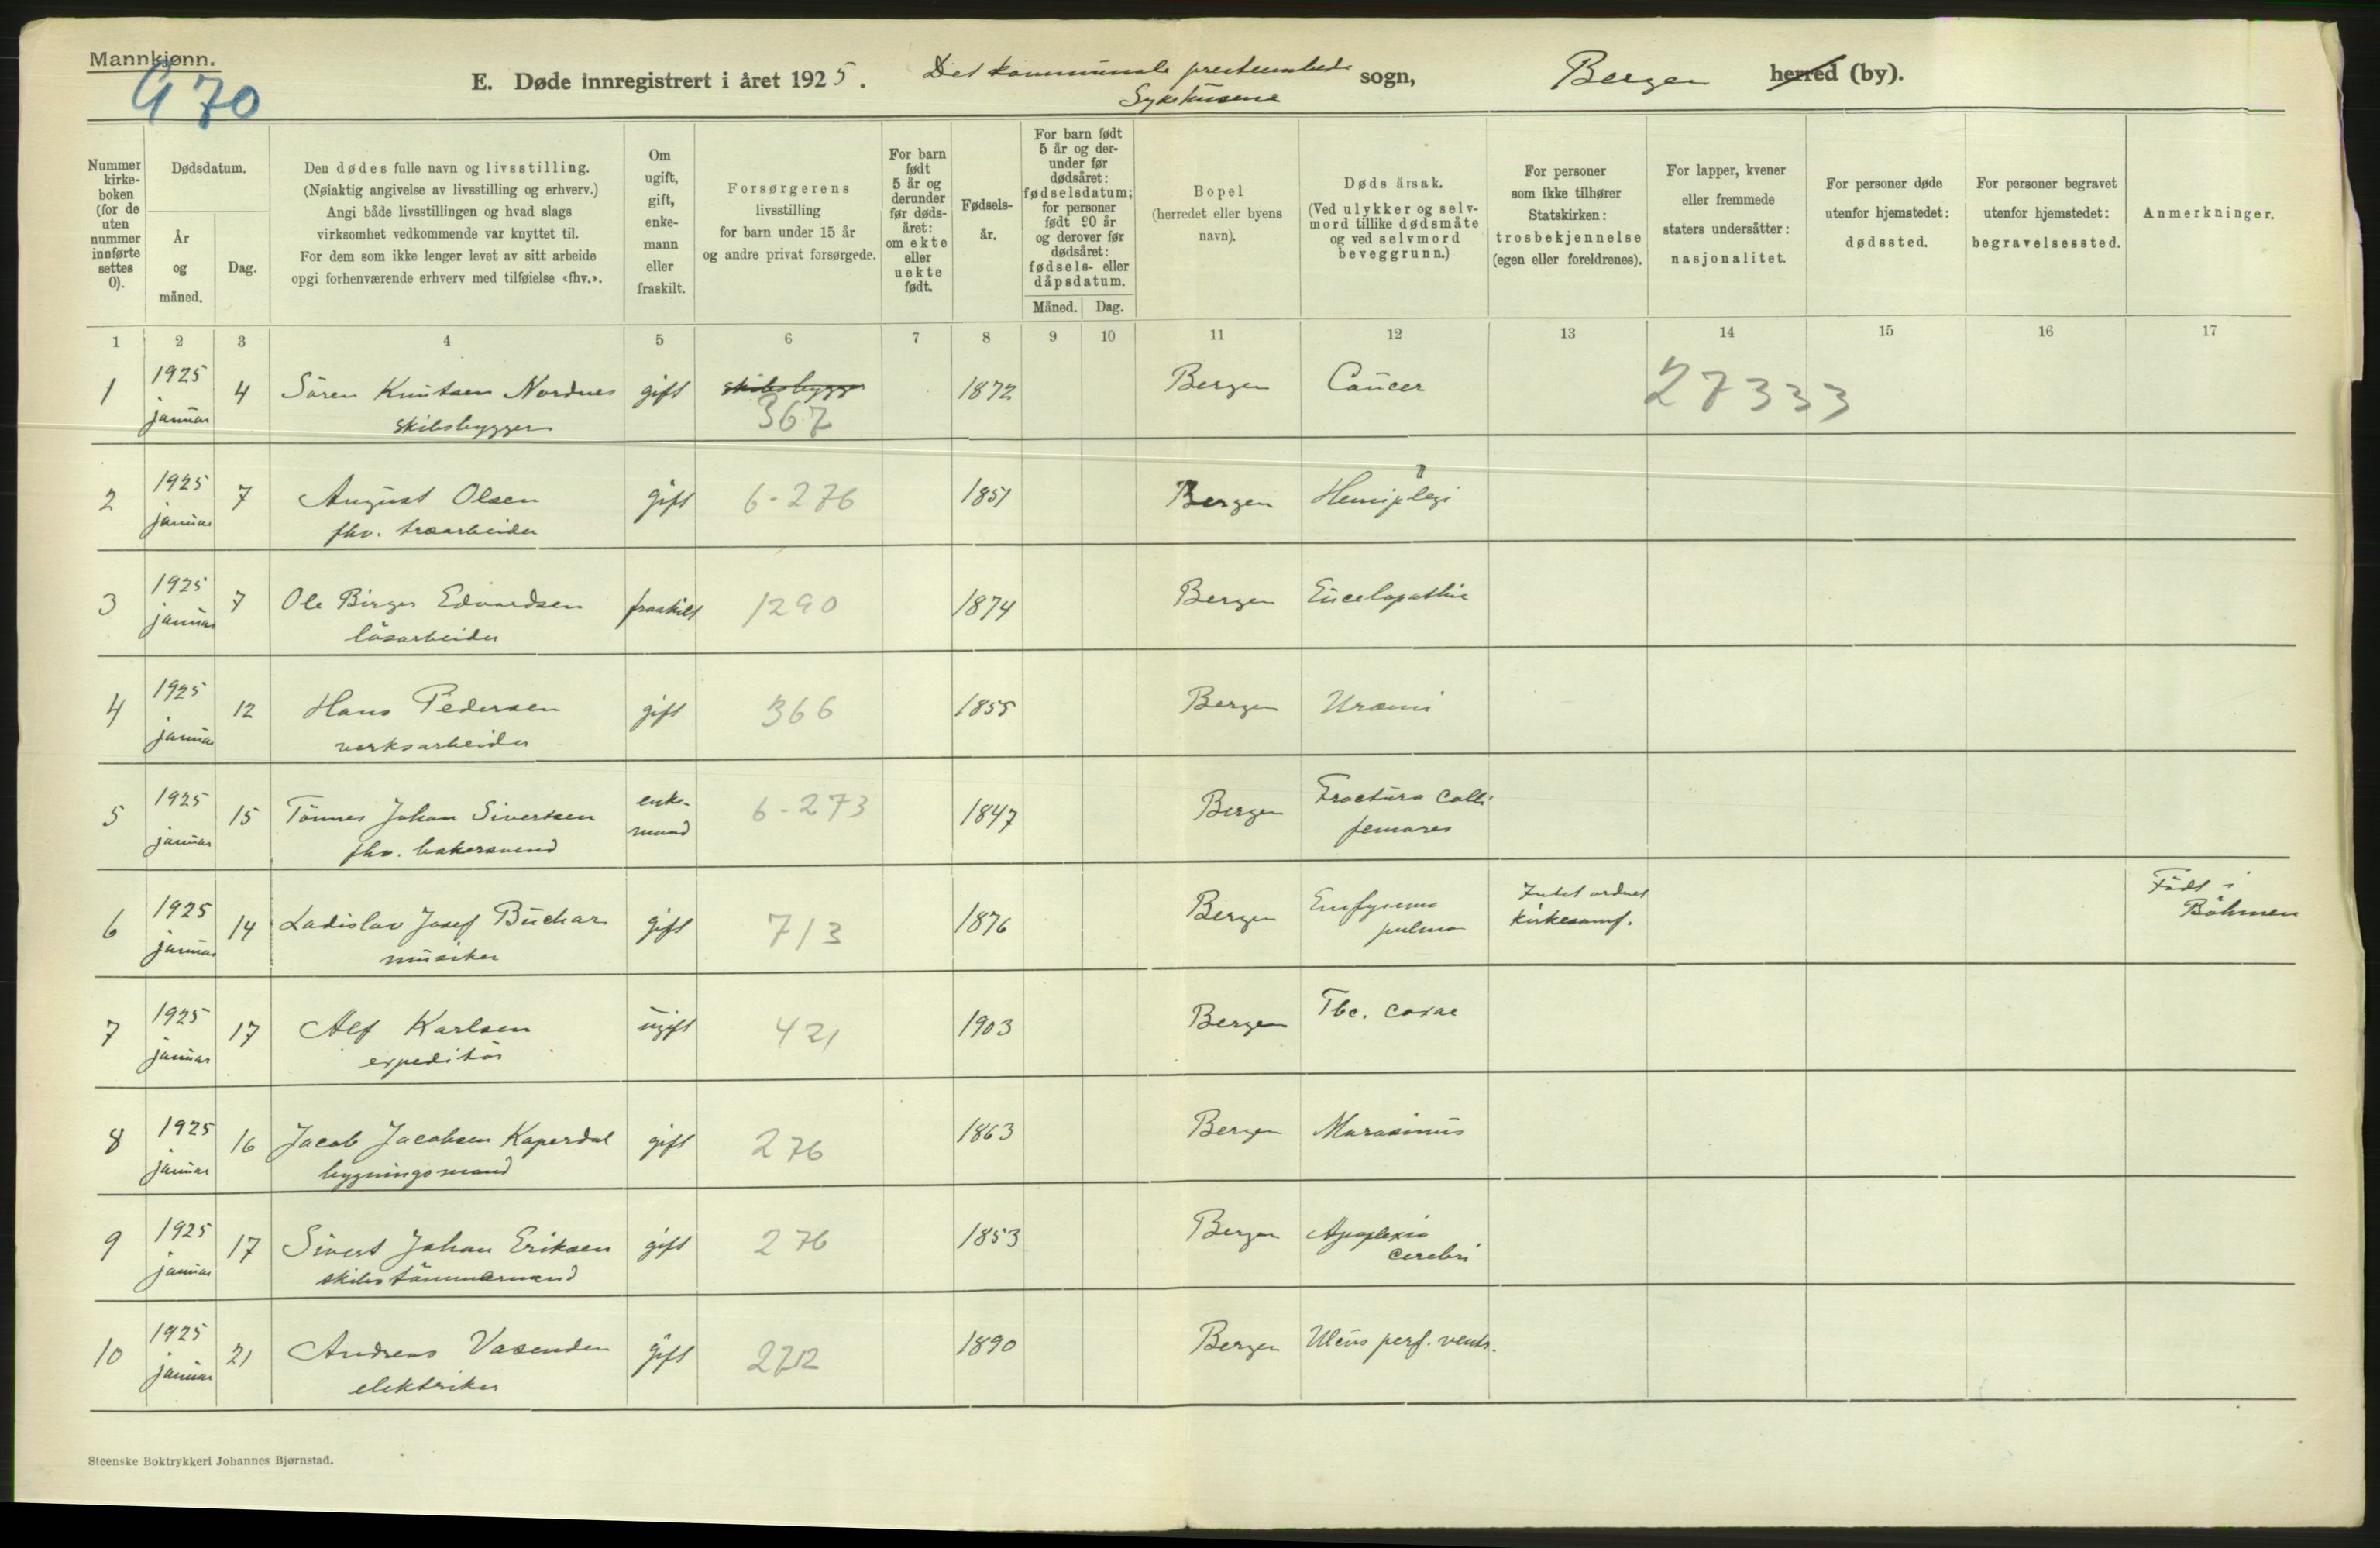 Mannkjønn.
G 70
E. Døde innregistrert i året 1925. Det kommunale presteembede sogn, Bergen herred (by).
Sykehusene
Nummer kirke-boken (for de uten nummer innførte settes 0).
Dødsdatum.
År og måned.
Dag.
Den dødes fulle navn og livsstilling.
(Nøiaktig angivelse av livsstilling og erhverv.)
Angi både livsstillingen og hvad slags
virksomhet vedkommende var knyttet til.
For dem som ikke lenger levet av sitt arbeide
opgi forhenværende erhverv med tilføielse «fhv.».
Om ugift, gift, enke-mann eller fraskilt.
Forsørgerens
livsstilling
for barn under 15 år
og andre privat forsørgede.
For barn født 5 år og derunder før døds-året: om ekte eller uekte født.
Fødsels-år.
For barn født 5 år og der-under før dødsåret: fødselsdatum; for personer født 90 år og derover før dødsåret: fødsels- eller dåpsdatum.
Måned. Dag.
Bopel
(herredet eller byens navn).
Døds årsak.
(Ved ulykker og selv-mord tillike dødsmåte og ved selvmord beveggrunn.)
For personer som ikke tilhører Statskirken: trosbekjennelse (egen eller foreldrenes).
For lapper, kvener eller fremmede staters undersåtter: nasjonalitet.
For personer døde utenfor hjemstedet: dødssted.
For personer begravet utenfor hjemstedet: begravelsessted.
Anmerkninger.
1 2 3 4 5 6 7 8 9 10 11 12 13 14 15 16 17
1 1925 januar 4 Sören Knutsen Nordnes gift skibsbygger 1872 Bergen Cancer 27333
skibsbygger 367
2 1925 januar 7 August Olsen gift 6-276 1851 Bergen Hemiplegi
fhv. træarbeider
3 1925 januar 7 Ole Birger Edvardsen fraskilt 1290 1874 Bergen Encelopathie
løsarbeider
4 1925 januar 12 Hans Pedersen gift 366 1855 Bergen Uræmi
verksarbeider
5 1925 januar 15 Tönnes Johan Sivertsen enke-mand 6-273 1847 Bergen Fractura Colli
fhv. bakersvend femores
6 1925 januar 14 Ladislav Josef Buchar gift 713 1876 Bergen Emfysema Intet ordnet Födt i
musiker pulmo kirkesamf. Böhmen
7 1925 januar 17 Alf Karlsen ugift 421 1903 Bergen Tbc. coxae
expeditör
8 1925 januar 16 Jacob Jacobsen Kaperdal gift 276 1863 Bergen Marasmus
bygningsmand
9 1925 januar 17 Sivert Johan Eriksen gift 276 1853 Bergen Apoplexia
skibstömmermand cerebri
10 1925 januar 21 Andreas Vasenden gift 2712 1890 Bergen Ulcus perf. ventr.
elektriker
Steenske Boktrykkeri Johannes Bjørnstad.